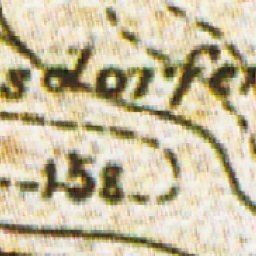 sdorfer
158